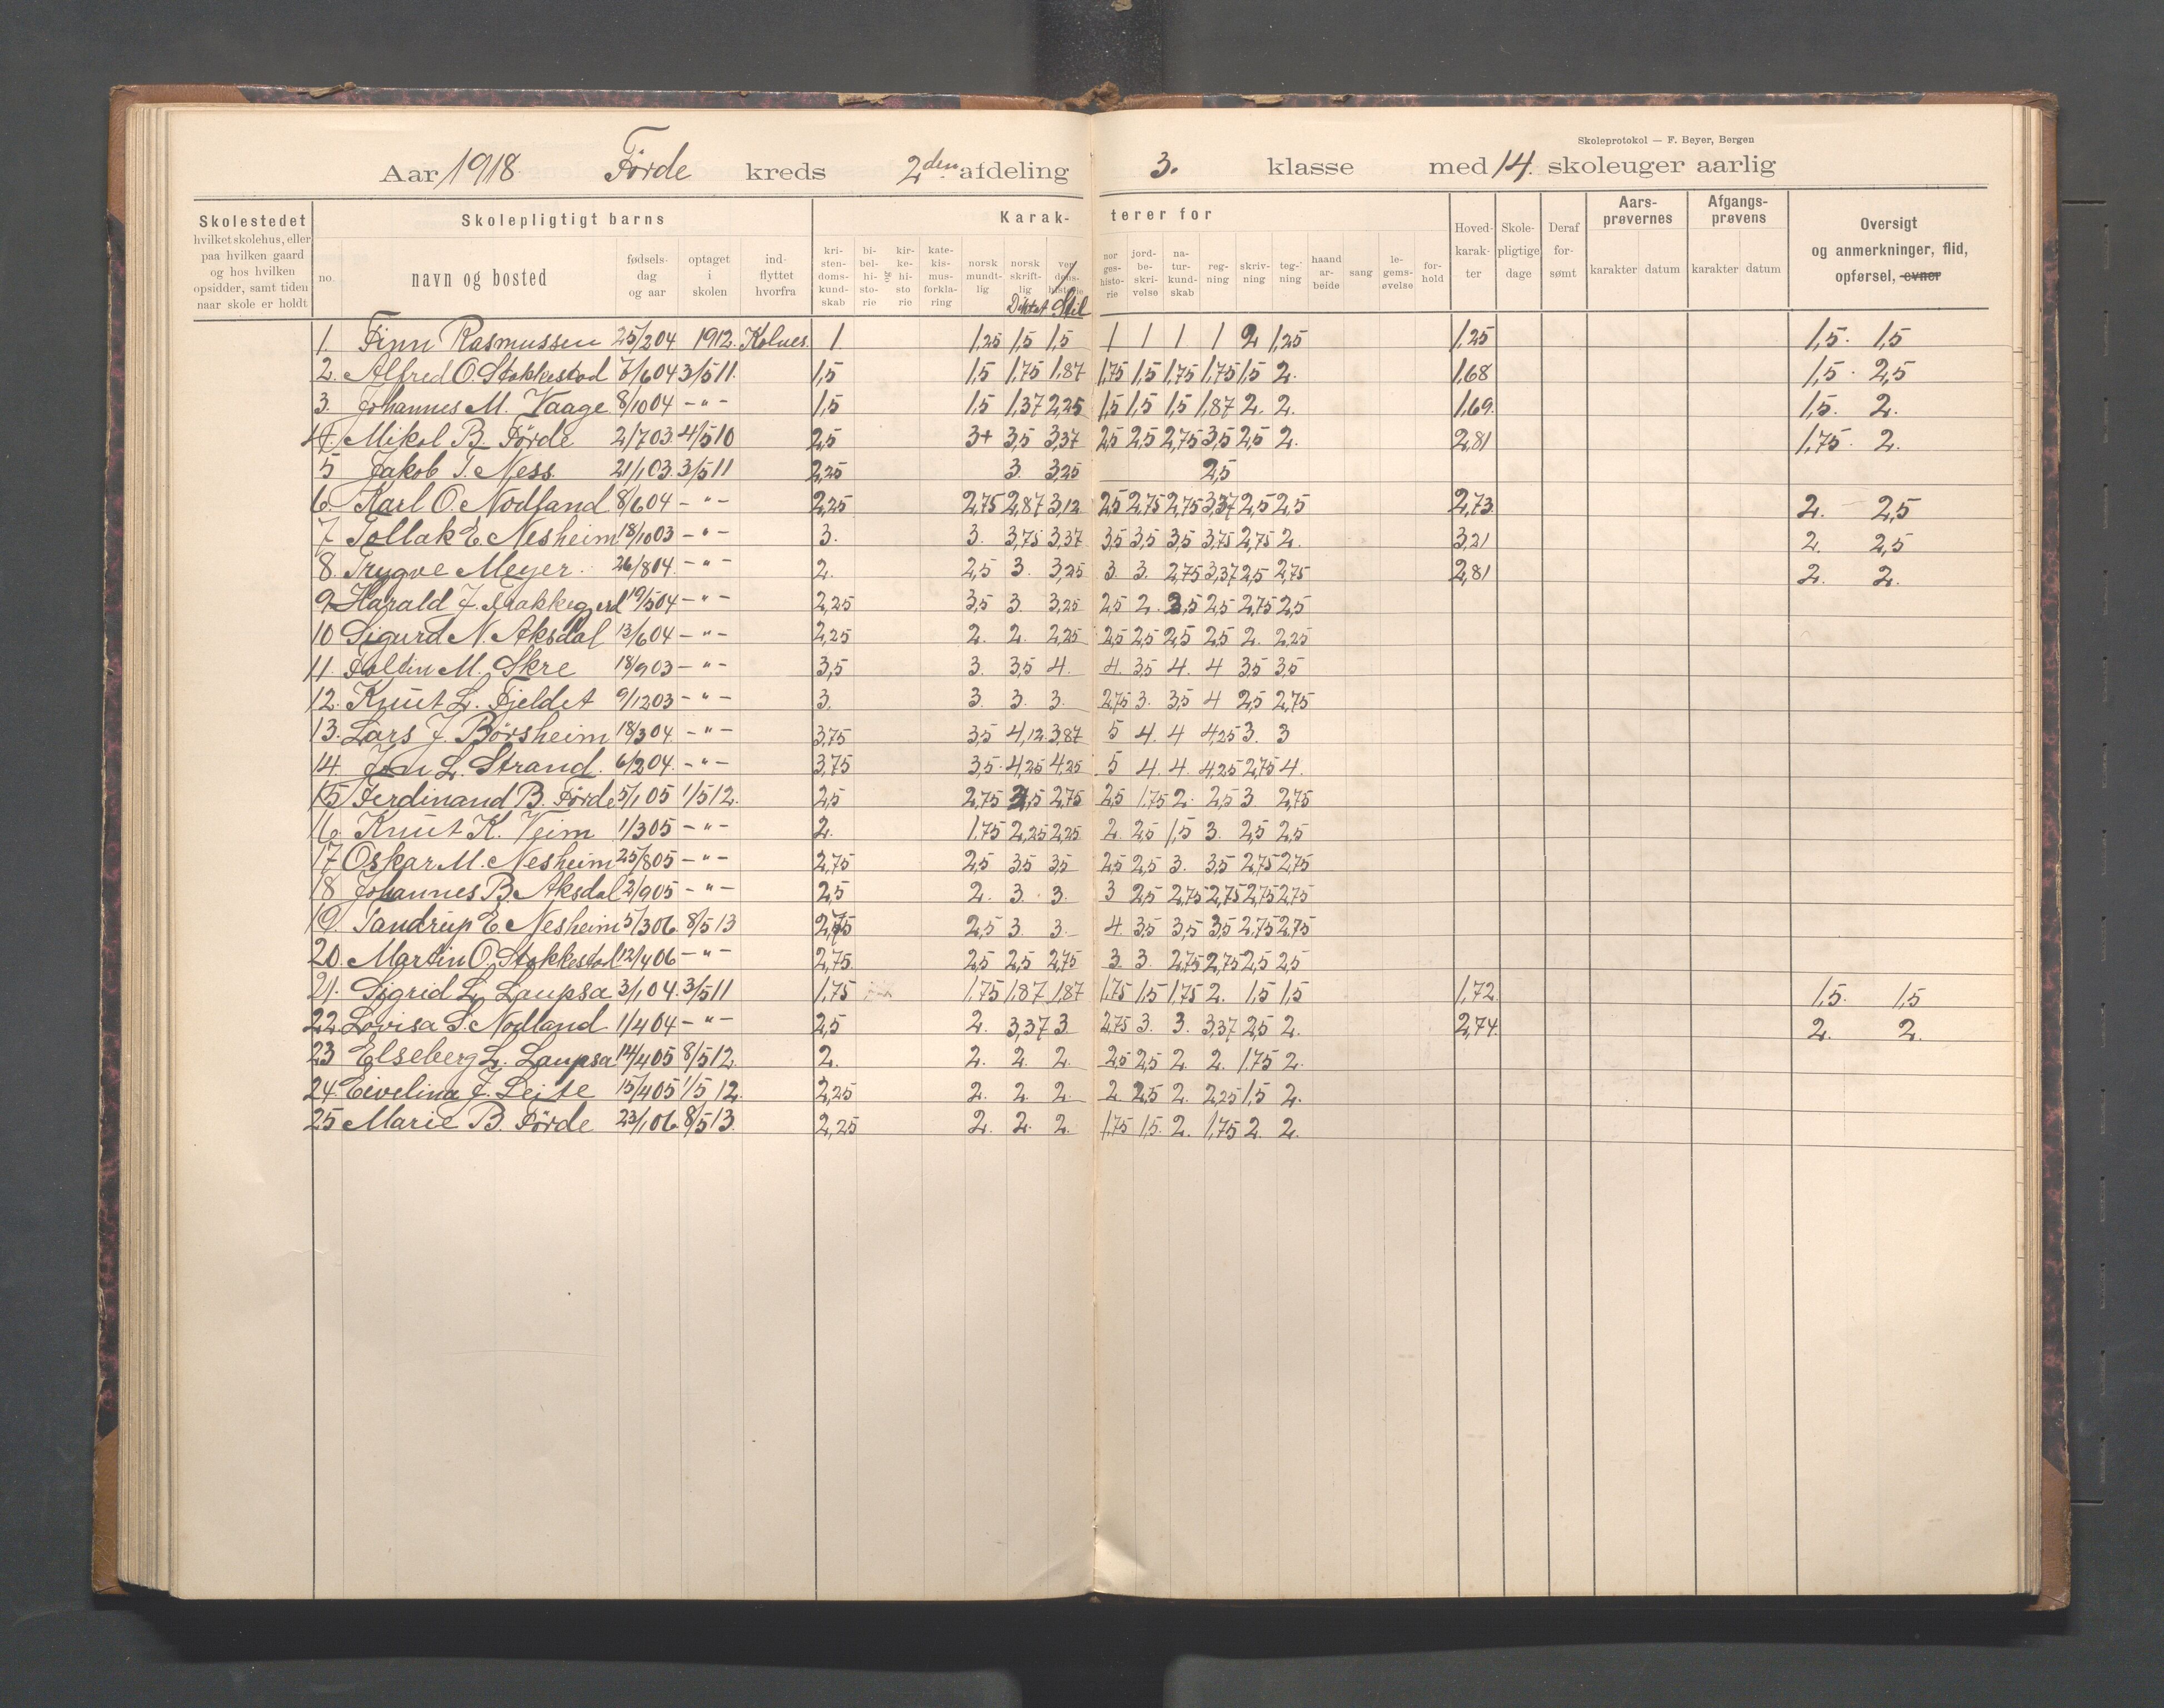 Skoleprotokol — F. Beyer, Bergen
Aar 1918 Förde kreds 2den afdeling 3. klasse med 14. skoleuger aarlig
Skolestedet hvilket skolehus, eller paa hvilken gaard og hos hvilken opsidder, samt tiden naar skole er holdt
Skolepligtigt barns
no. navn og bosted fødsels-dag og aar optaget i skolen ind-flyttet hvorfra
Karak- terer for
kri-sten-doms-kund-skab bi-bel-hi-sto-rie og kir-ke-hi-sto rie kate-kis-mus-forkla-ring norsk mundt-lig norsk skrift-lig Diktat ver dens-historie Stil nor ges-histo-rie jord-be-skri-velse na-tur-kund-skab reg-ning skriv-ning teg-ning haand ar-beide sang le-gems-øvelse for-hold
Hoved-karak-ter Skole-pligtige dage Deraf for-sømt
Aars-prøvernes karakter datum
Afgangs-prøvens karakter datum
Oversigt og anmerkninger, flid, opførsel, evner
1. Finn Rasmussen 25/2 04 1912. Kolnes. 1 1,25 1,5 1,5 1 1 1 1 2 1,25 1,25 1,5. 1,5
2. Alfred O. Stokkestod 7/6 04 3/5 11. 1,5 1,5 1,75 1,87 1,75 1,5 1,75 1,75 1,5 2. 1,68 1,5. 2,5
3. Johannes M. Vaage 8/10 04 - " - 1,5 1,5 1,37 2,25 1,5 1,5 1,5 1,87 2. 2. 1,69. 1,5. 2.
4. Mikal B. Förde 21/7 03 4/5 10 2,5 3+ 3,5 3,37 2,5 2,5 2,75 3,5 2,5 2. 2,81 1,75. 2.
5 Jakob T. Ness. 21/1 03. 3/5 11 2,25 3. 3,25 2,5
6. Karl O. Nodland 8/6 04 - " - 2,25 2,75 2,87 3,12 2,5 2,75 2,75 3,37 2,5 2,5 2,73 2. 2,5
7 Tollak E. Nesheim 18/10 03 - " - 3. 3. 3,75 3,37 3,5 3,5 3,5 3,75 2,75 2. 3,21 2. 2,5
8. Trygve Meyer. 26/8 04. - " - 2. 2,5 3. 3,25 3. 3. 2,75 3,37 2,5 2,75 2,81 2. 2.
9. Harald J. 19/5 04 - " - 2,25 3,5 3. 3,25 2,5 2. 3,5 2,5 2,75 2,5
10 Sigurd N. Aksdal 13/6 04 - " - 2,25 2. 2. 2,25 2,5 2,5 2,5 2,5 2. 2,25
11. Foldin M. Skre 18/9 03 - " - 3,5 3. 3,5 4. 4. 3,5 4. 4 3,5 3,5
12. Knut L. Fjeldet 9/12 03 - " - 3. 3. 3. 3. 2,75 3. 3,5 4 2,5 2,75
13. Lars J. Börsheim 18/3 04 - " - 3,75 3,5 4,12 3,87 5 4. 4 4,25 3. 3
14. Jon L. Strand. 6/2 04. - " - 3,75 3,5. 4,25 4,25 5 4. 4. 4,25 2,75 4.
15 Ferdinand B. Förde 5/1 05 1/5 12. 2,5 2,75 2,5 2,75 2,5 1,75 2. 2,5 3 2,75
16. Knut K. Veim 1/3 05 - " - 2. 1,75 2,25 2,25 2. 2,5 1,5 3. 2,5 2,5
17 Oskar M. Nesheim 25/8 05 - " - 2,75 2,5 3,5 3,5 2,5 2,5 3. 3,5 2,75 2,75
18 Johannes B. Aksdal 2/9 05 - " - 2,5 2. 3. 3. 3 2,5 2,75 2,75 2,75 2,75
19. Tandrup E. Nesheim 5/3 06 8/5 13 2,75 2,5 3. 3. 4. 3,5 3,5 3,5 2,75 2,75
20. Martin O. Stokkestad 12/4 06 - " - 2,75. 2,5 2,5 2,75 3. 3. 2,75 2,75 2,5 2,5
21. Sigrid L. Laupsa 3/1 04. 3/5 11 1,75 1,75 1,87 1,87 1,75 1,5 1,75 2. 1,5 1,5 1,72. 1,5. 1,5
22. Lovisa S. Nodland 1/4 04 - " - 2,5 2. 3,37 3 2,75 3. 3. 3,37 2,5 2. 2,74. 2. 2.
23 Elseberg L. Laupsa 14/4 05 8/5 12. 2. 2. 2. 2. 2,5 2,5 2. 2. 1,75 2.
24. Eivelina J. Leite 15/4 05 1/5 12. 2,25 2. 2. 2. 2 2,5 2. 2,25 1,5 2.
25 Marie B. Förde 23/1 06. 8/5 13. 2,25 2. 2. 2. 1,75 1,5. 2. 1,75 2. 2.